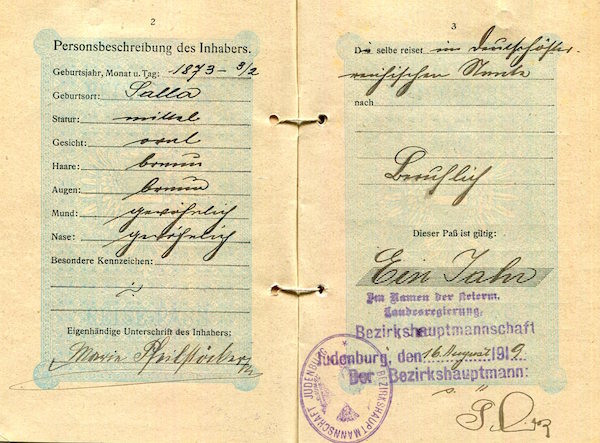 2
Personsbeschreibung des Inhabers.
Geburtsjahr, Monat u. Tag: 1873 - 3/2
Geburtsort: Salla
Statur: mittel
Gesicht: oval
Haare: braun
Augen: braun
Mund: gewöhnlich
Nase: gewöhnlich
Besondere Kennzeichen:
Eigenhändige Unterschrift des Inhabers:
Marie
3
Die selbe reiset im Deutschöster-
reichischen Staate
nach
Beruflich
Dieser Paß ist giltig:
Ein Jahr
Im Namen der steierm.
Landesregierung.
Bezirkshauptmannschaft
Judenburg, den 16. August 1919
Der Bezirkshauptmann:
BEZIRKSHAUPTMANNSCHAFT JUDENBURG